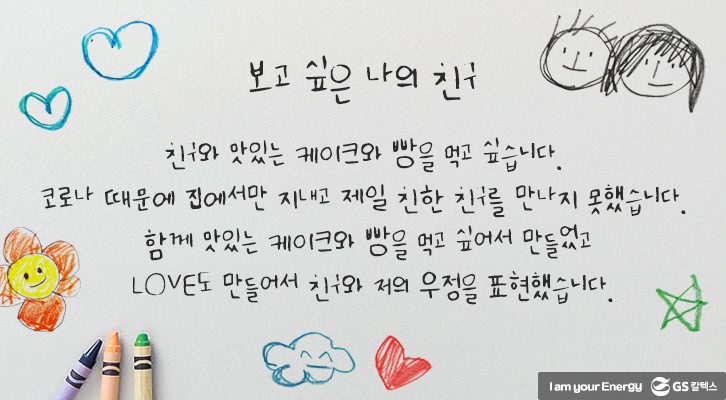 보고 싶은 나의 친구
친구와 맛있는 케이크와 빵을 먹고 싶습니다.
코로나 때문에 집에서만 지내고 제일 친한 친구를 만나지 못했습니다.
함께 맛있는 케이크와 빵을 먹고 싶어서 만들었고
LOVE도 만들어서 친구와 저의 우정을 표현했습니다.
I am your Energy GS칼텍스